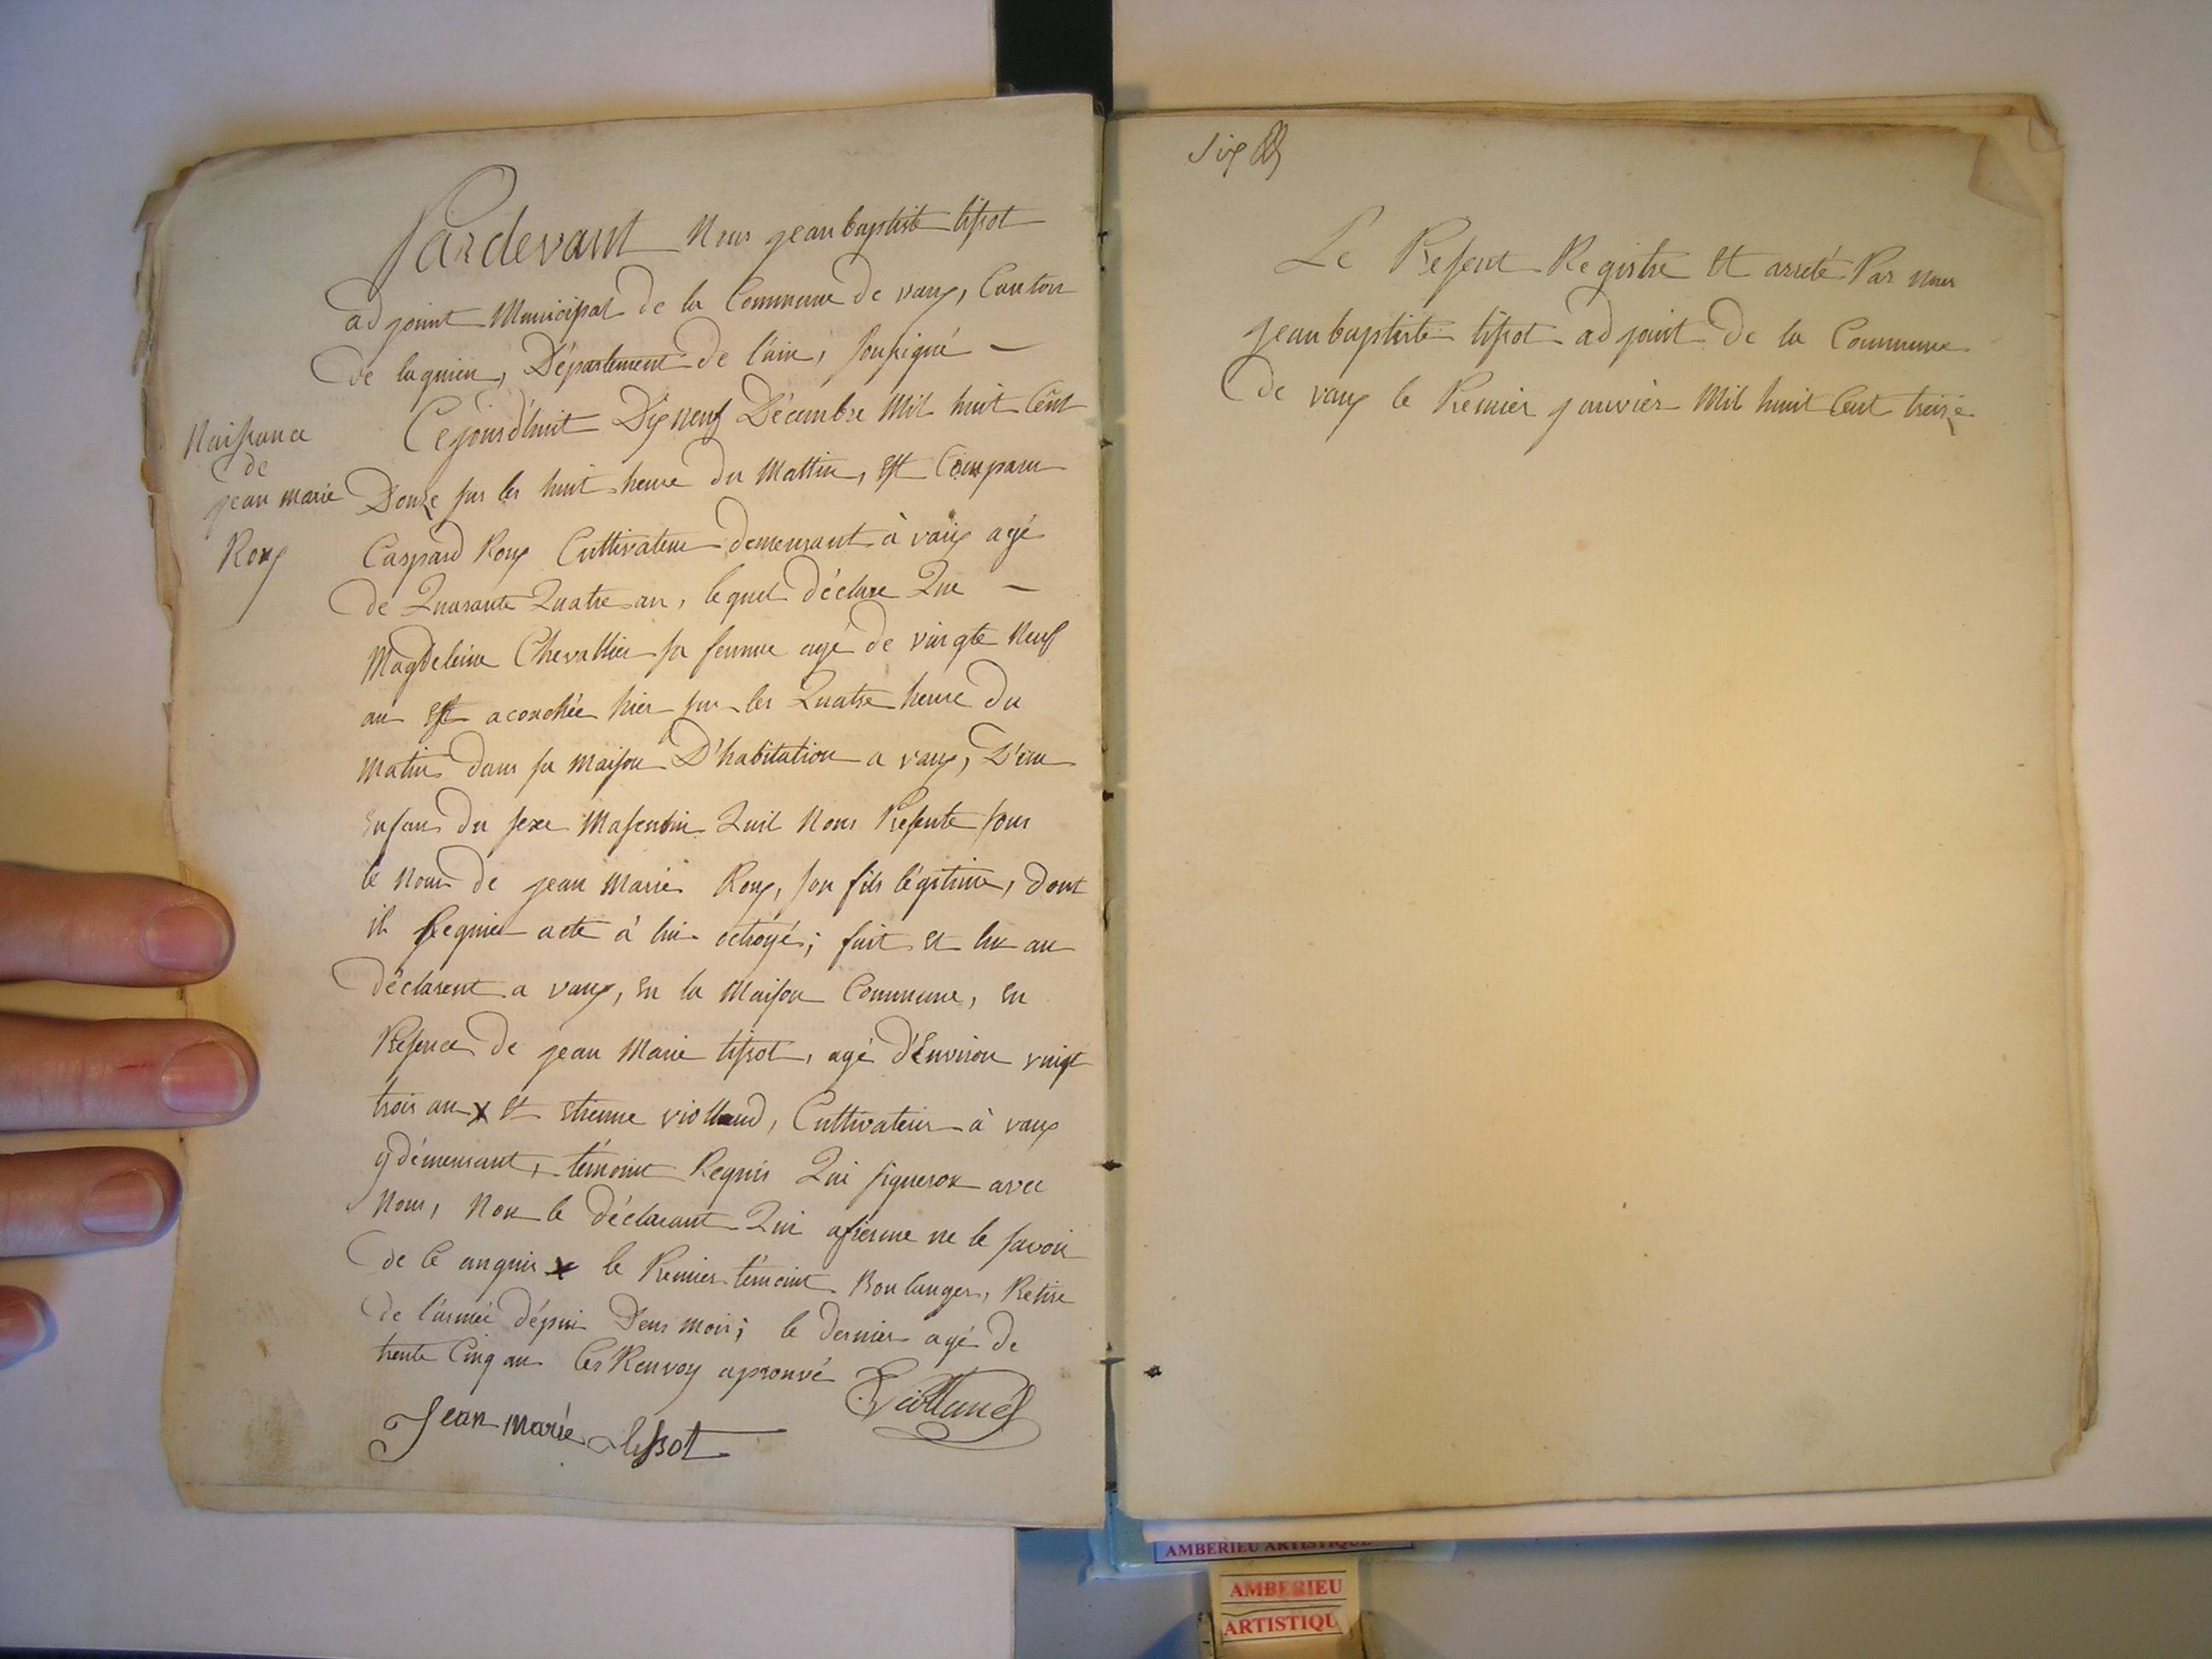 Pardevant Nous jean baptiste tissot
adjoint Municipal de la Commune de vaux, Canton
de lagnieu, Département de l'ain, soussigné —
Naissance
de
jean marie
Roux
Cejourd'huit Dix neuf Décembre Mil huit Cent
Douze sur les huit heure du Mattin, Est Comparu
Caspard Roux Cultivateur demeurant à vaux agé
de Quarante Quatre an, lequel déclare Que —
Magdeleine Chevallier sa femme agé de vingte Neuf
an Est acouchée hier sur les Quatre heure du
matin dans sa maison D'habitation a vaux, D'un
Enfans du sexe Masculin Quil Nous Présente sous
le Nom de jean Marie Roux, son fils légitime, dont
il Requier acte à lui octroyé; fait Et lu au
déclarent a vaux, En la Maison Commune, En
Présence de jean Marie tissot, agé d'Environ vingt
trois an x Et Etienne violland, Cultivateur à vaux
y démeurant, témoint Requis Qui signeron avec
Nous, Non le déclarant Qui afirme ne le savoir
de Ce anquis x le Premier témoint Boulanger, Retire
de l'armée dépuis Deux mois; le dernier agé de
trente Cinq an Ces Renvoy aprouvé
Jean marie tissot
Six
Le Présent Registre Et arreté Par nous
jean baptiste tissot adjoint de la Commune
de vaux le Premier janvier Mil huit Cent treize
AMBERIEU ARTISTIQUE
AMBERIEU
ARTISTIQU